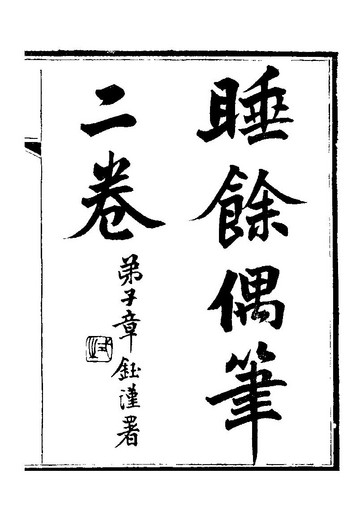 睡餘偶筆
二卷
弟子章鈺謹署